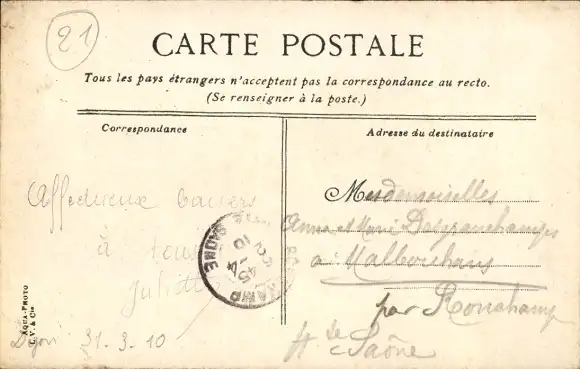 21
CARTE POSTALE
Tous les pays étrangers n'acceptent pas la correspondance au recto.
(Se renseigner à la poste.)
Correspondance
Adresse du destinataire
Affectueux baisers
à tous
Juliette
Dijon 31-3-10
Mesdemoiselles
Anne et Marie
à Malbouhans
par Ronchamp
Hte Saône
AQUA-PHOTO
L.V. & Cie